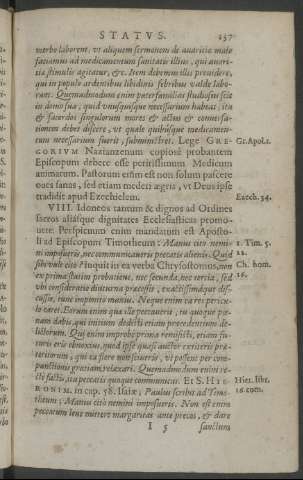 STATVS. 137
verbo laborent, vt aliquem sermonem de auaritia male
faciamus ad medicamentum sanitatis illius, qui auari-
tiæ stimulis agitatur, &c. Item debemus illis prouidere,
qui in populo ardentibus libidinis febribus valde labo-
rant. Quemadmodum enim paterfamilias studiosus scit
in domo sua, quid vnusquisque necessarium habeat, ita
& sacerdos singulorum mores & actus & conuersa-
tionem debet discere, vt quale cuibusque medicamen-
tum necessarium fuerit, subministret. Lege GRE-
GORIVM Nazianzenum copiosè probantem Gr. Apol. 1.
Episcopum debere esse peritissimum Medicum
animarum. Pastorum enim est non solum pascere
oues sanas, sed etiam mederi ægris, vt Deus ipse
tradidit apud Ezechielem. Ezech. 34.
VIII. Idoneos tantùm & dignos ad Ordines
sacros aliásque dignitates Ecclesiasticas promo-
uere. Perspicuum enim mandatum est Aposto-
li ad Episcopum Timotheum: Manus citò nemi- 1. Tim. 5.
ni imposueris, nec communicaueris peccatis alienis. Quid 22.
sibi vult citò? Inquit in ea verba Chrysostomus, non Ch. hom.
ex prima statim probatione, nec secunda, nec tertia, sed 16.
vbi consideratio diuturna præcessit, exactissimáque discus-
sio, tunc imponito manus. Neque enim ea res pericu-
lo caret. Earum enim quæ ille peccauerit, tu quoque pœ-
nam dabis, qui initium dedisti etiam præcedentium de-
lictorum. Qui enim improbè prima remisisti, etiam fu-
turis eris obnoxius, quod ipse quasi auctor exstiteris præ-
teritorum, qui ea fiere non siueris, vt possent per com-
punctionis gratiam relaxari. Quemadmodum enim re-
ctè factis, ita peccatis quoque communicas. Et S. HIE-
RONIM. in cap. 58. Isaiæ; Paulus scribit ad Timo- Hier. libr.
theum; Manus citò nemini imposueris. Non est enim 16. com.
peccatum leue mittere margaritas ante porcos, & dare
I 5 sanctum